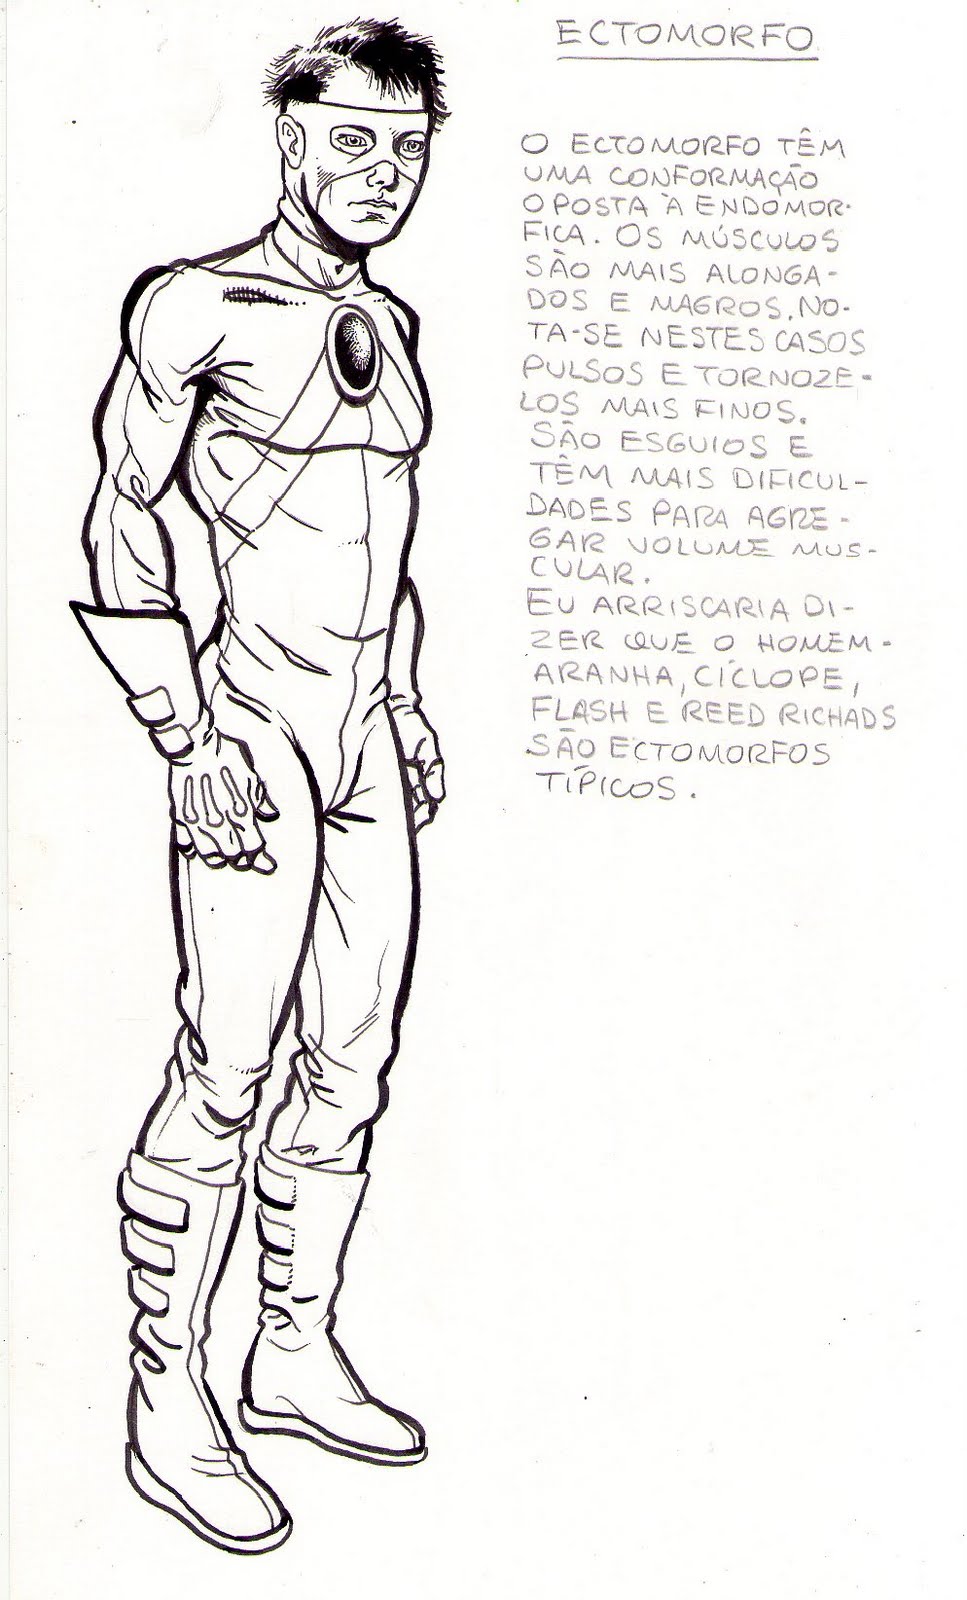 ECTOMORFO
O ECTOMORFO TÊM
UMA CONFORMAÇÃO
OPOSTA À ENDOMOR-
FICA. OS MÚSCULOS
SÃO MAIS ALONGA-
DOS E MAGROS. NO-
TA-SE NESTES CASOS
PULSOS E TORNOZE-
LOS MAIS FINOS.
SÃO ESGUIOS E
TÊM MAIS DIFICUL-
DADES PARA AGRE-
GAR VOLUME MUS-
CULAR.
EU ARRISCARIA DI-
ZER QUE O HOMEM-
ARANHA, CÍCLOPE,
FLASH E REED RICHADS
SÃO ECTOMORFOS
TÍPICOS.